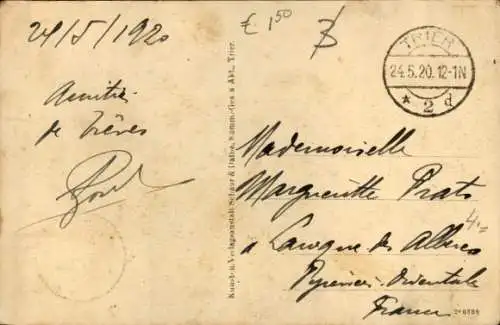 24/5/1920
£ 1,50
TRIER
24.5.20.12-1N
* 2 d
Amitiés
de Trèves
Kunst- u. Verlagsanstalt Schaar & Dathe, Komm.-Ges. a. Akt., Trier.
Mademoiselle
Margueritte Prats
a Laroque des Albères
Pyrénées-Orientales
France
4,-